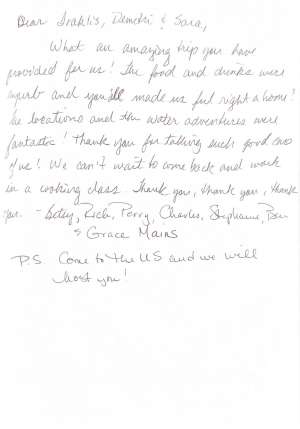 Dear Iraklis, Demetri & Sara,
What an amazing trip you have
provided for us! The food and drinks were
superb and you'll made us feel right a home!
The locations and the water adventures were
fantastic! Thank you for taking such good care
of me! We can't want to come back and work
in a cooking class. Thank you, thank you, thank
you. - Betsy, Rich, Perry, Charles, Stephanie, Ben
& Grace Mains
P.S. Come to the US and we will
host you!